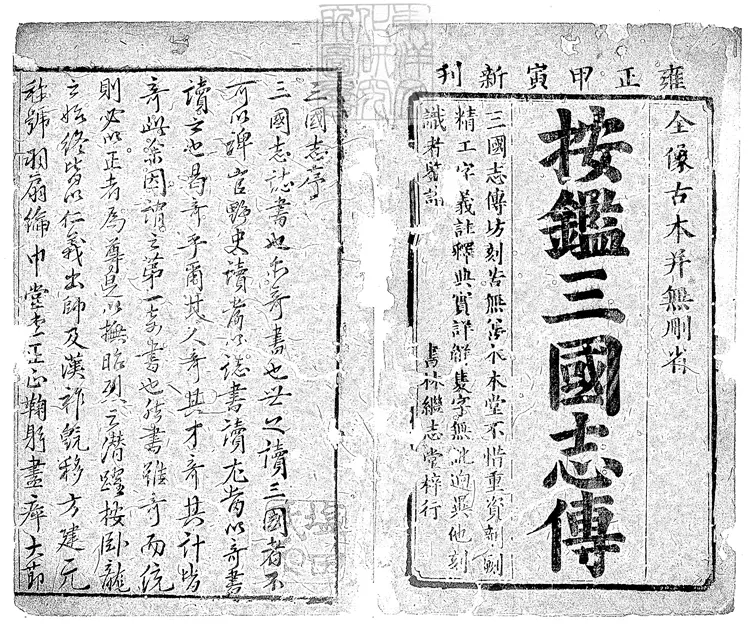 雍正甲寅新刊
全像古本并無刪省
按鑑三國志傳
三國志傳坊刻苦無善本本堂不惜重資新刻
精工字義註釋典實詳解隻字無訛逈異他刻
識者鑒諸
書林繼志堂梓行
三國志序
三國志誌書也亦奇書也世之讀三國者不
可以稗官野史讀當以誌書讀尤當以奇書
讀之也曷奇乎爾其人奇其才奇其計皆
奇此余因謂之第一奇書也然書雖奇而統
則必以正者為尊是以撫昭烈之潛躍按臥龍
之始終皆以仁義出師及漢祚既移方建元
稱號羽扇綸巾堂堂正正鞠躬盡瘁大節